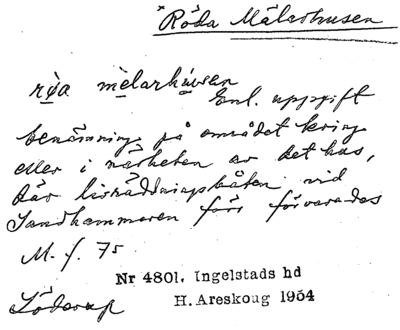 * Röda Mälarhusen
rǫ̀a mèlarhúsen
Enl. uppgift
benämning på området kring
eller i närheten av det hus,
där livräddningsbåten vid
Sandhammaren förr förvarades
M. f. 75
Nr 4801. Ingelstads hd
Löderup H. Areskoug 1954